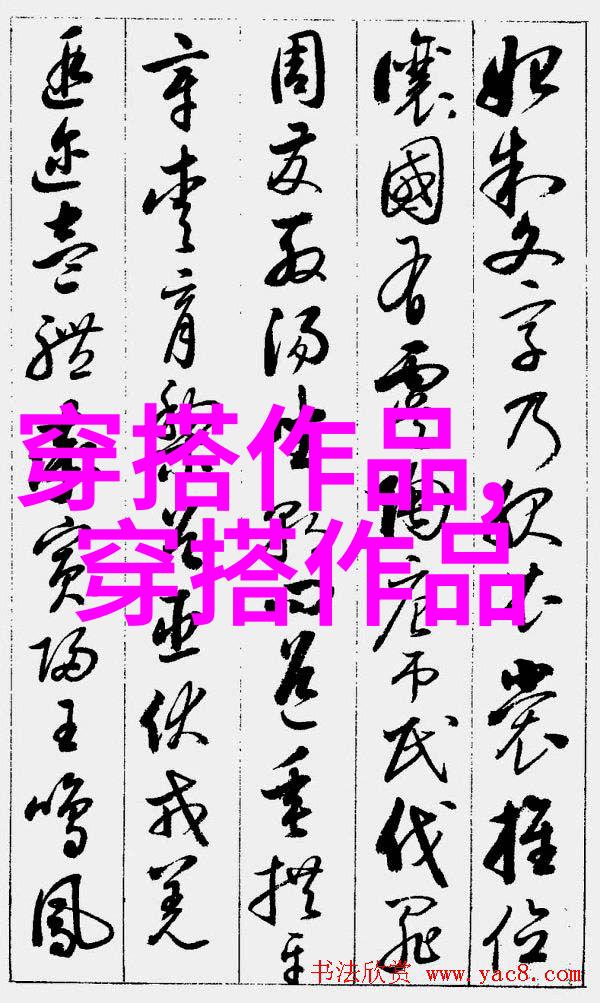 始制文字乃服衣裳推位
讓國有虞陶唐吊民伐罪
周發殷湯坐朝問道垂拱平
章愛育黎首臣伏戎羌
遐邇壹體率賓歸王鳴鳳
穿搭作品,
穿搭作品
书法欣赏 www.yac8.com